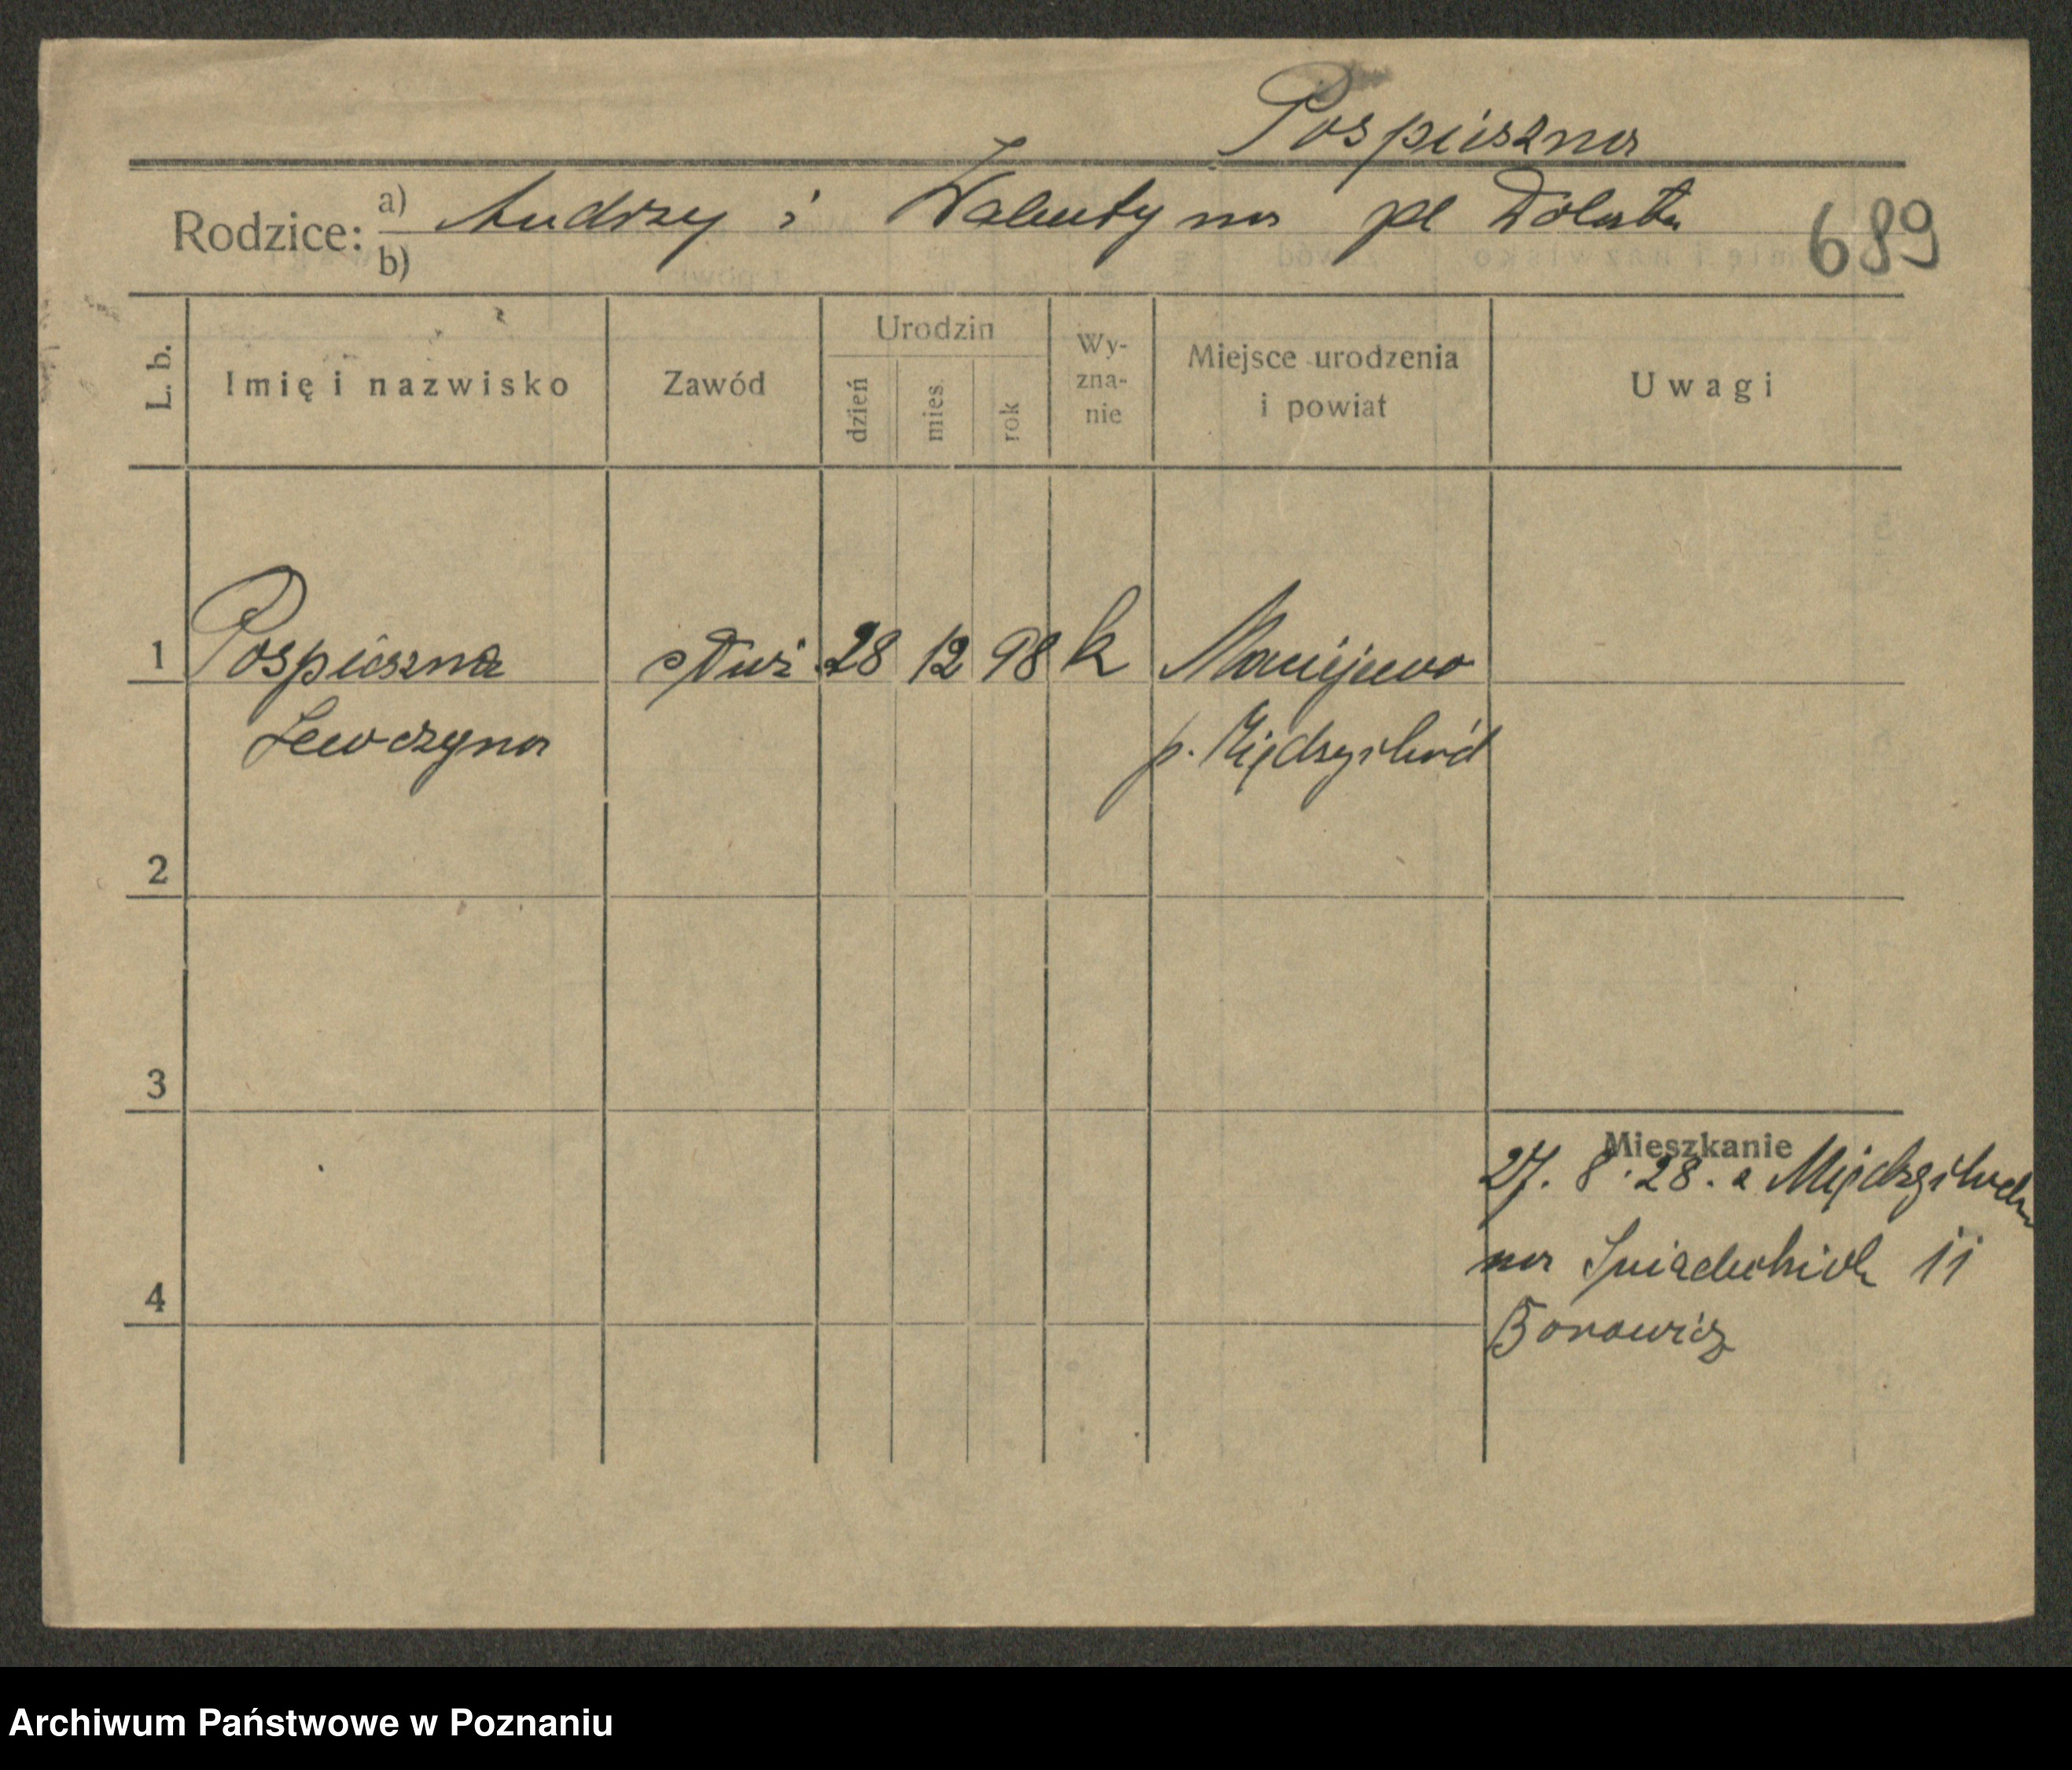 Pospieszna
Rodzice: a) Andrzej i Walentyna pl Dolata
b)
689
L. b. Imię i nazwisko Zawód Urodzin dzień mies. rok Wy-zna-nie Miejsce urodzenia i powiat Uwagi
1 Pospieszna służ. 28 12 98 k Maciejewo
p. Międzychód
2
3
Mieszkanie
27. 8. 28. z Międzychodu
na Śniadeckich 11
4
Borowicz
Archiwum Państwowe w Poznaniu